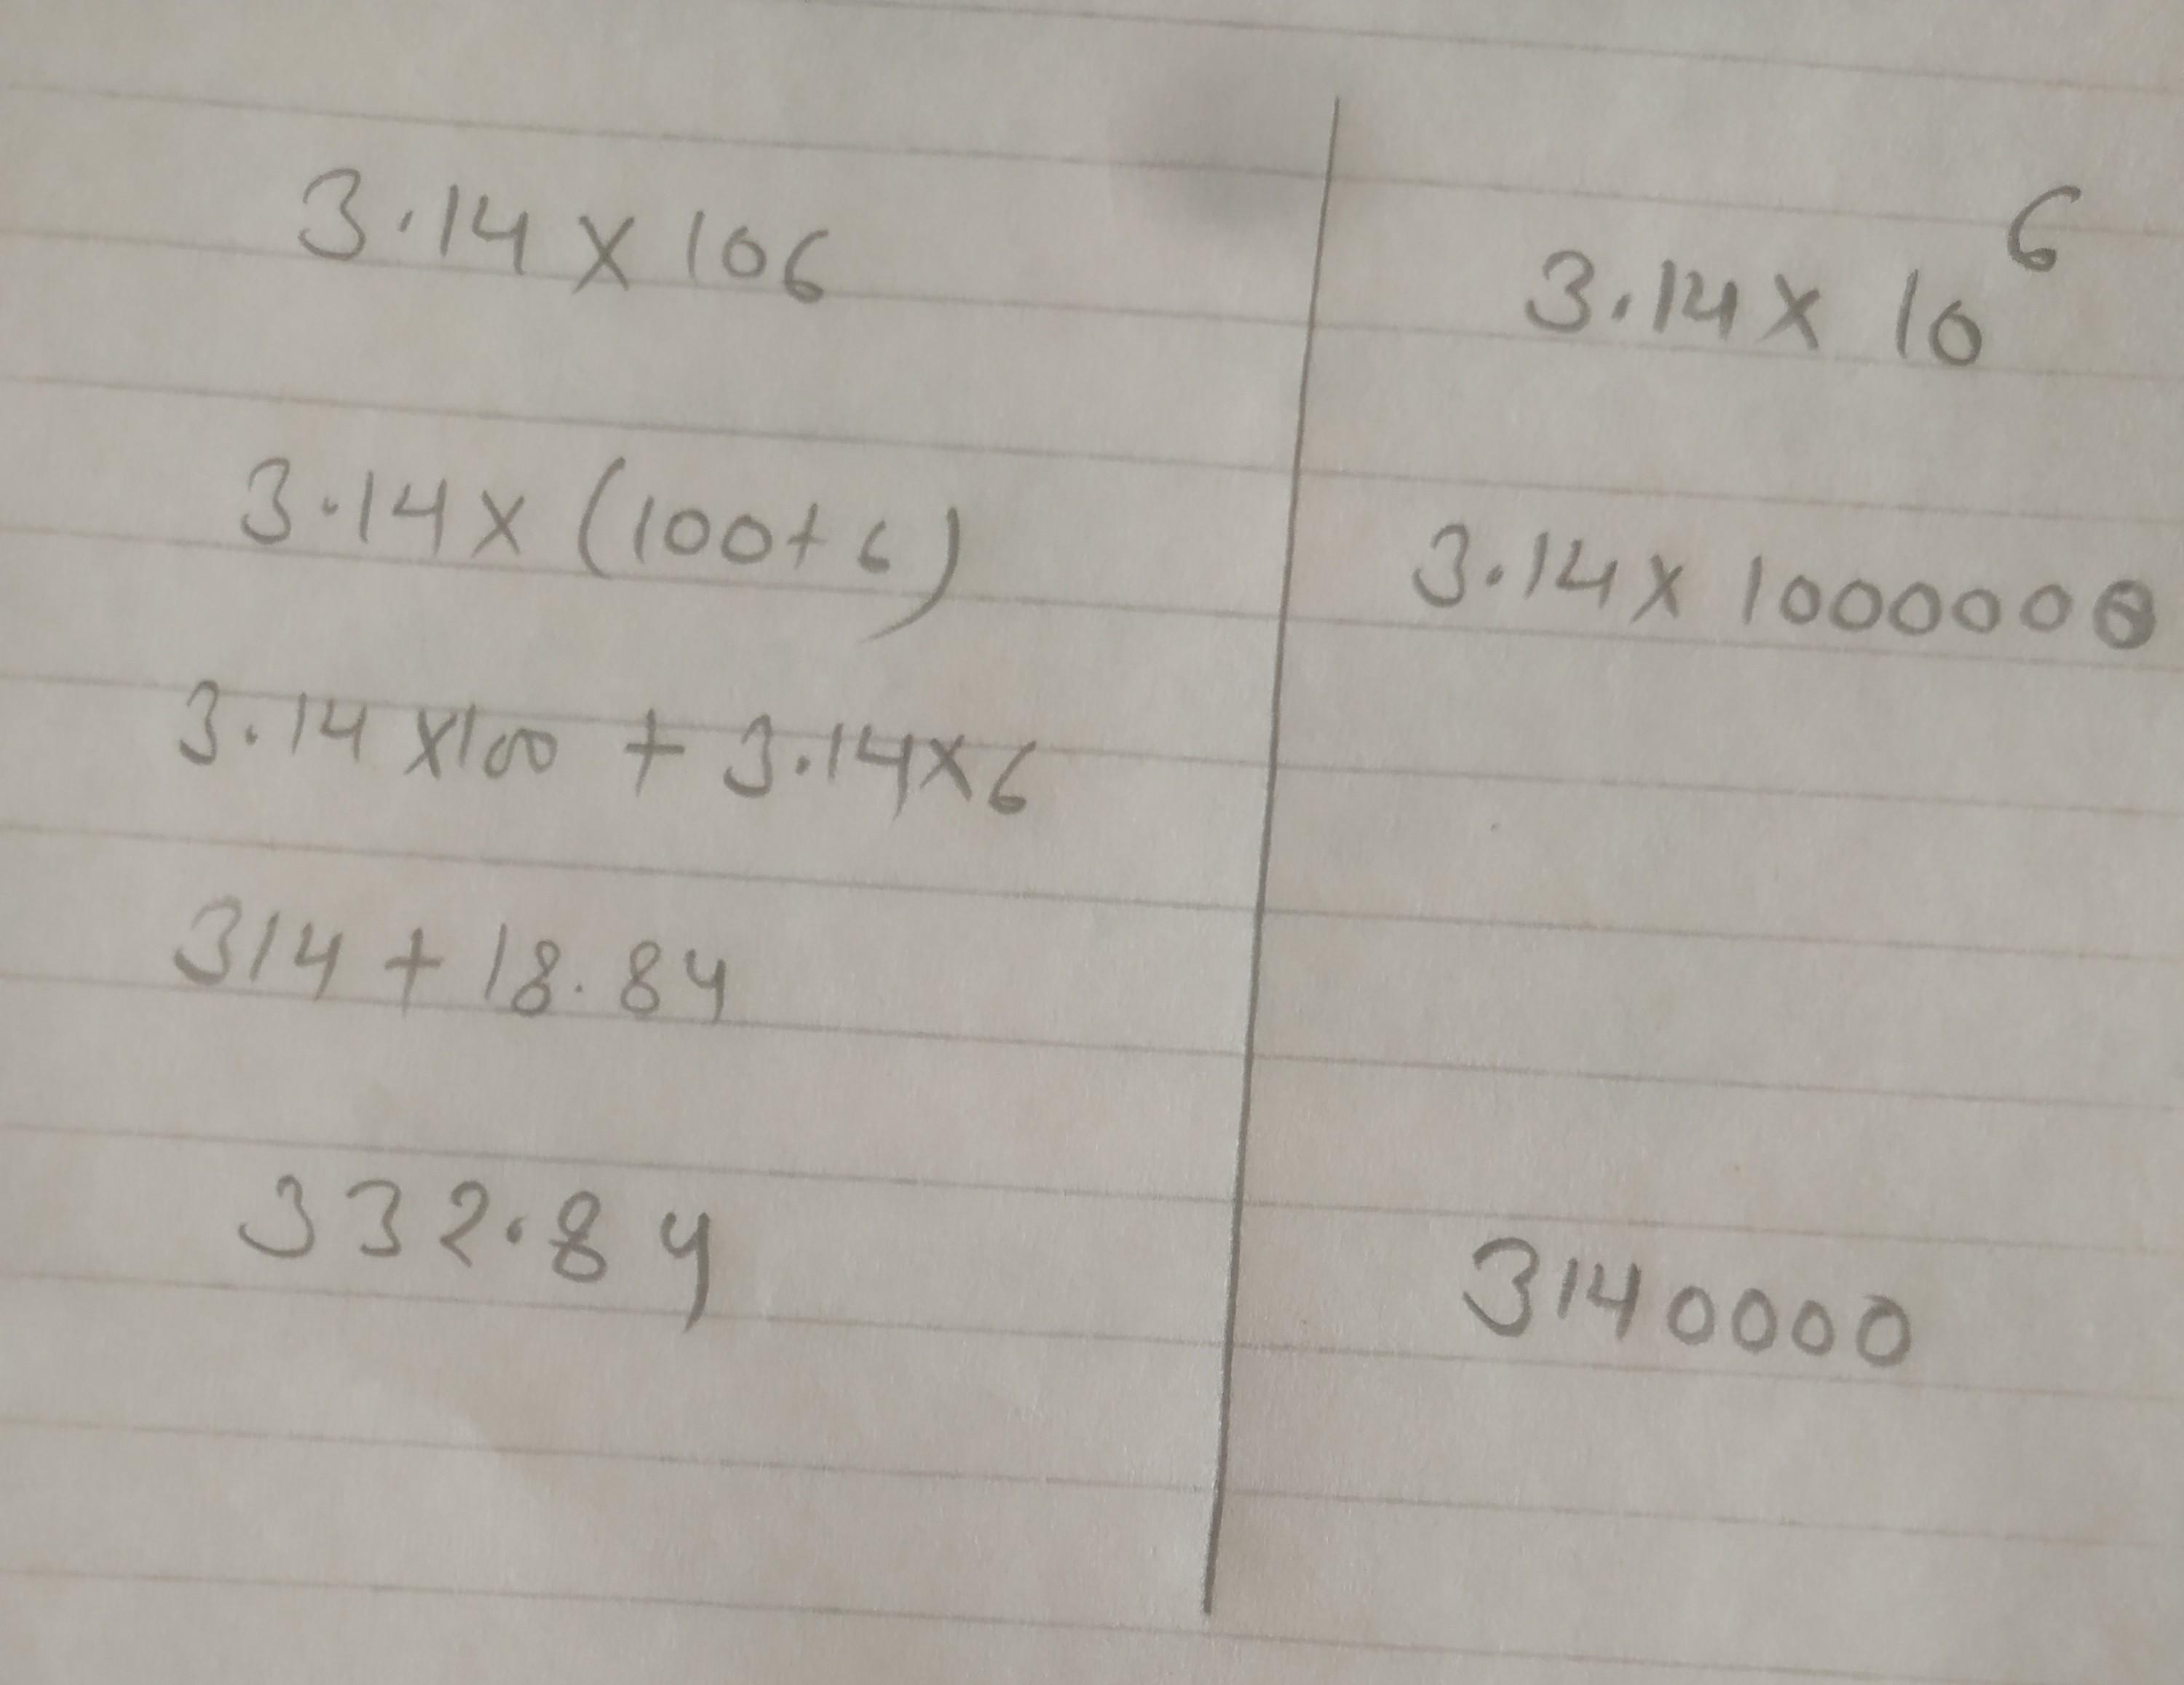 3.14 x 106
3.14 x (100+6)
3.14 x100 + 3.14x6
314 + 18.84
332.84
3.14 x 10⁶
3.14 x 1000000
3140000